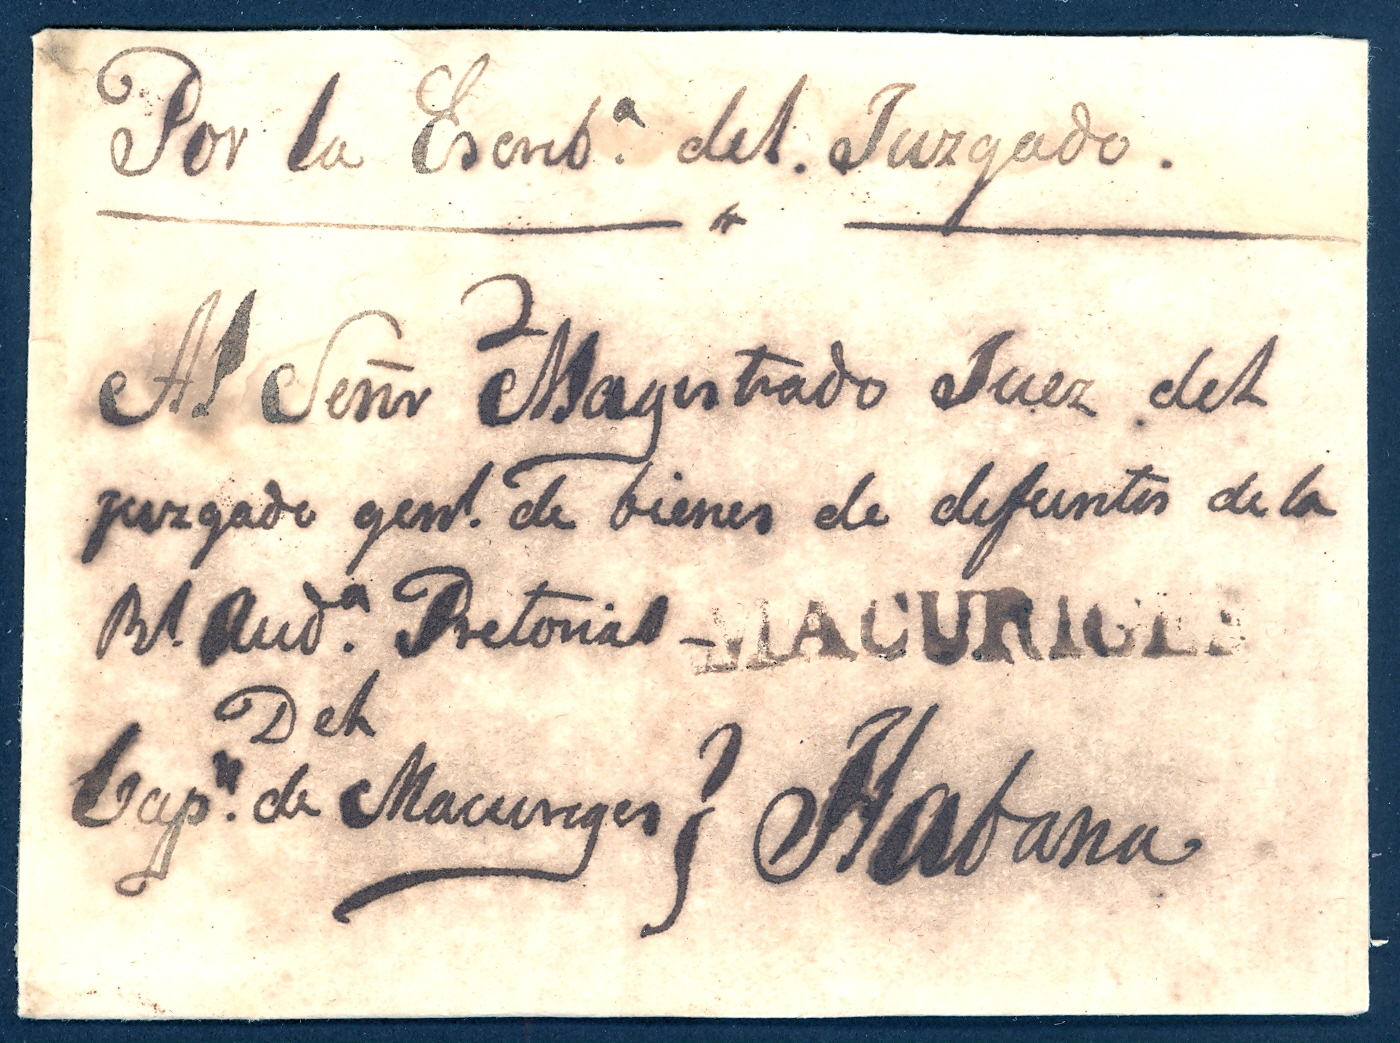 Por la Escribª. del. Juzgado.
Al Señr Magistrado Juez del
juzgado genl. de bienes de difuntos de la
Rl. Audª. Pretorial MACURIGES
Del
Capn. de Macuriges Habana